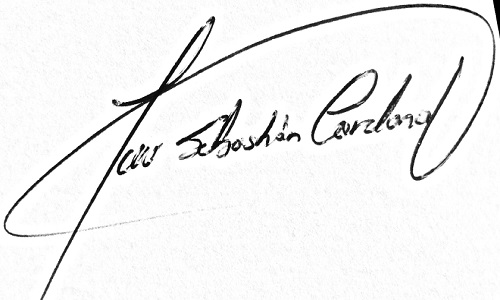 Sebastián Cardona